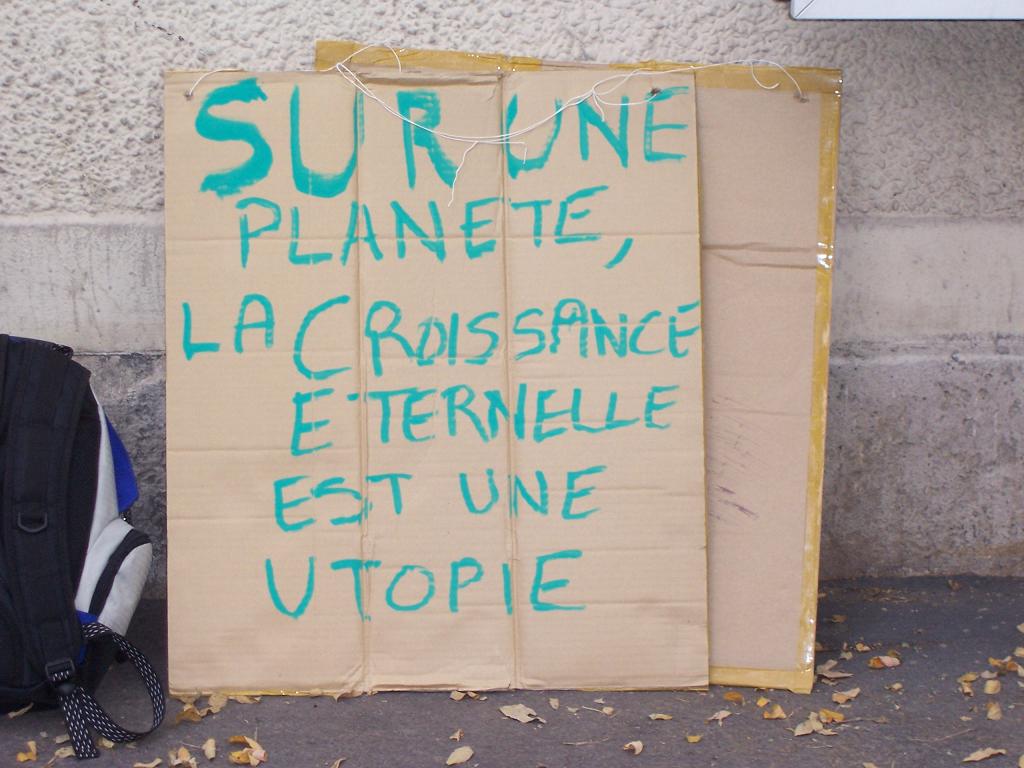 SUR UNE
PLANETE,
LA CROISSANCE
ETERNELLE
EST UNE
UTOPIE